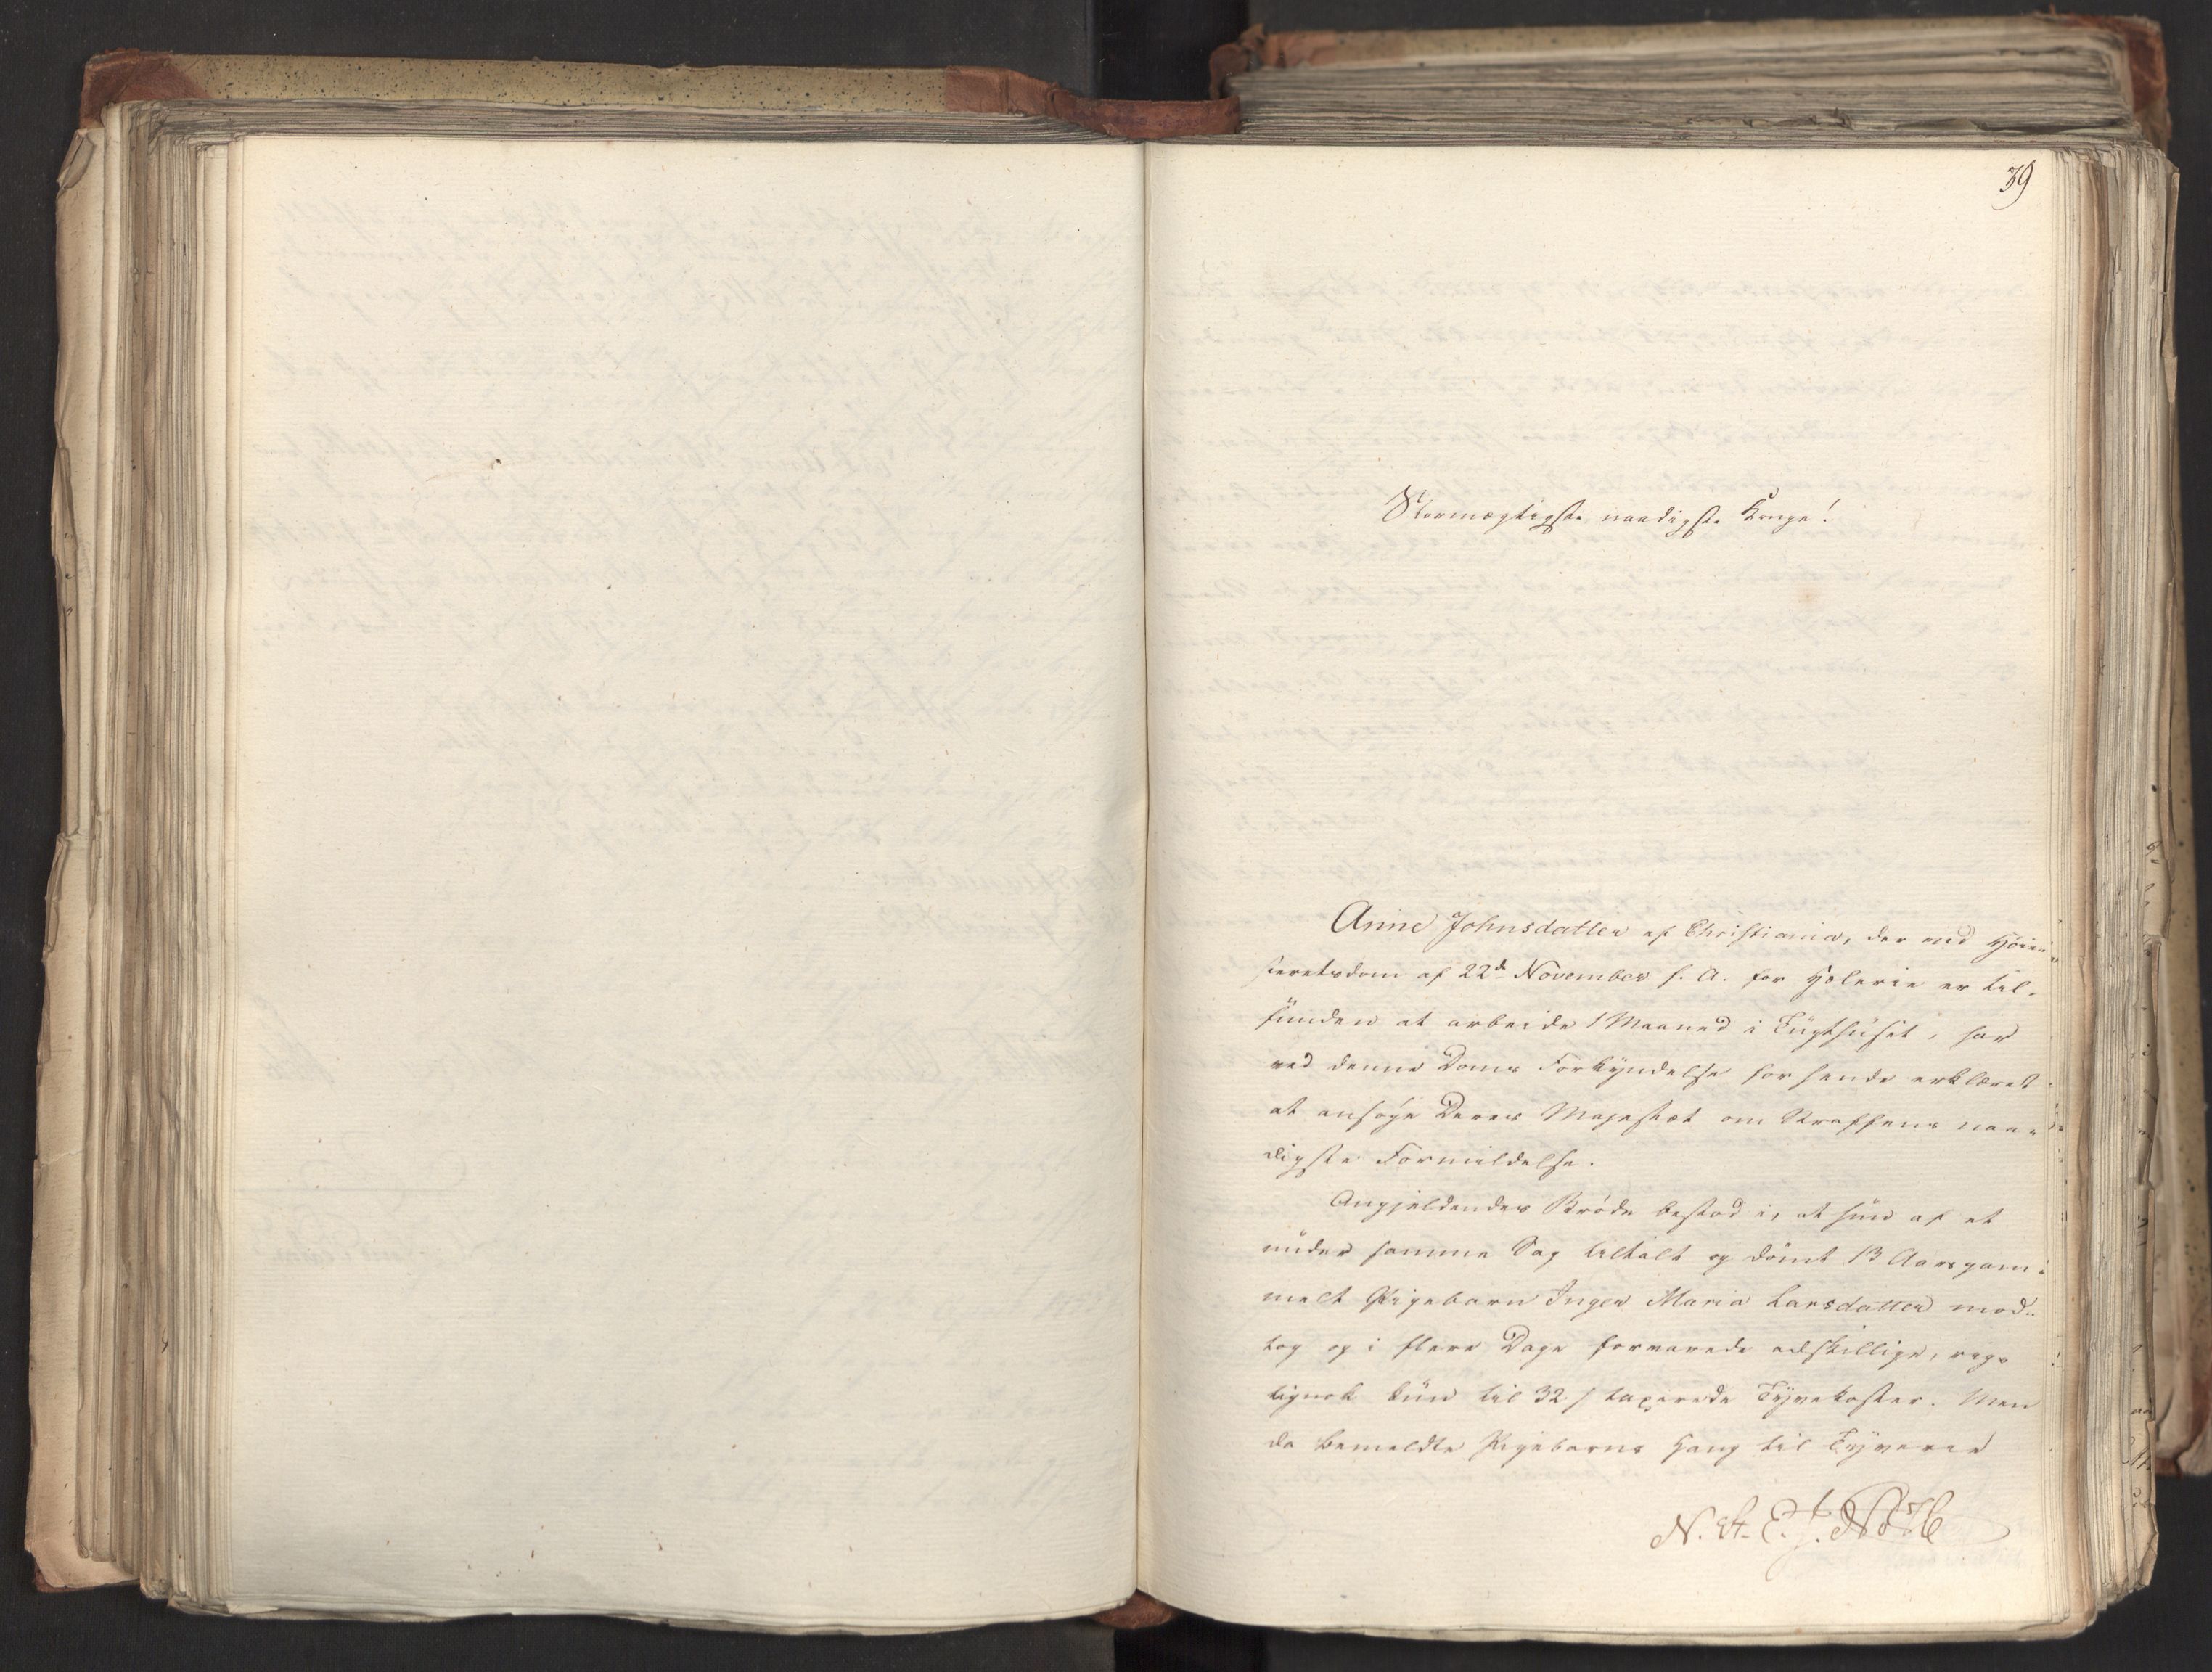 39
Stormægtigste, naadigste Konge!
Anne Johnsdatter af Christiania, der ved Höie-
steretsdom af 22de November f. A. for Hæleri er til-
funden at arbeide 1 Maaned i Tügthüset, har
ved denne Doms Forkyndelse for hende erklæret
at ansøge Deres Majestæt om Straffens naa-
digste Formildelse.
Angjeldendes Brøde bestod i, at hün af et
ünder samme Sag tiltalt og dömt 13 Aar gam-
melt Pigebarn Inger Maria Larsdatter mod-
tog og i flere Dage forvarede adskillige, rig-
tignok kün til 32 s taxerede Tyvekoster. Men
da bemeldte Pigebarns Hang til Tyverie
N. St. E. J.